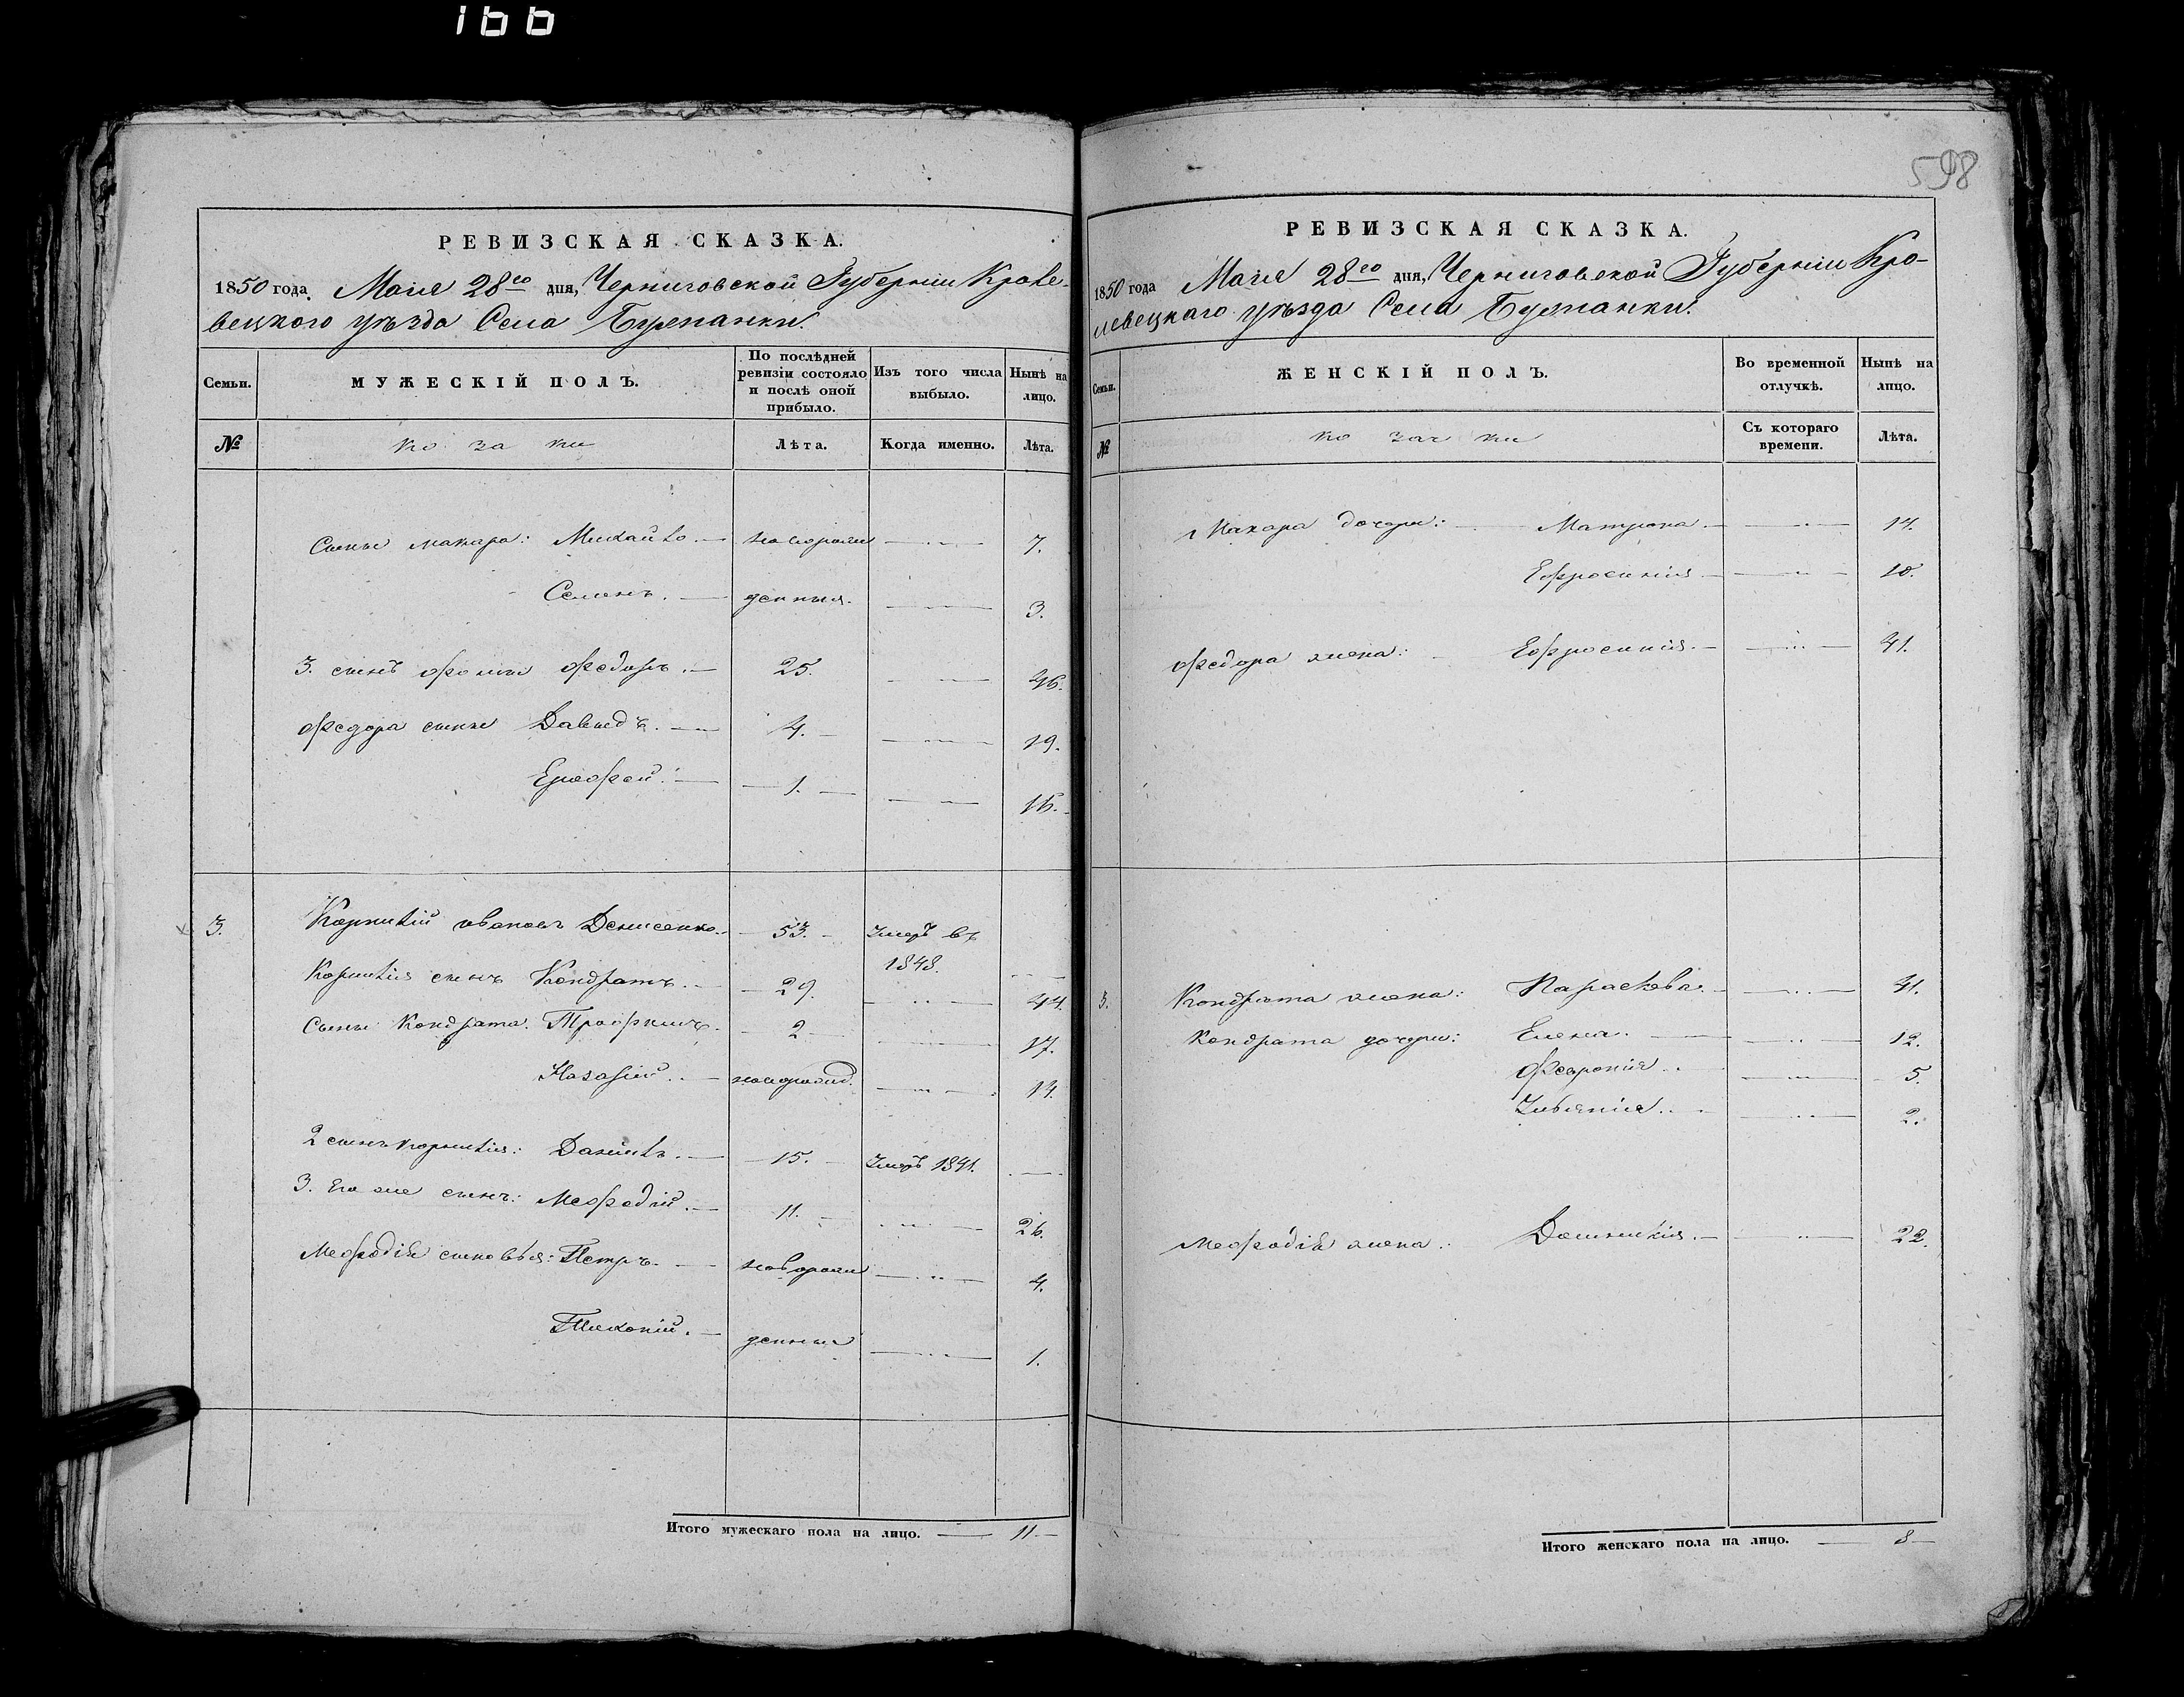 166
598
РЕВИЗСКАЯ СКАЗКА.
1850 года. Маія 28го дня, Черниговской Губерніи Кроле-
вецкого уѣзда Села
Семьи. МУЖЕСКІЙ ПОЛЪ. По послѣдней ревизіи состояло и послѣ оной прибыло. Изъ того числа выбыло. Нынѣ на лицо.
№ козаки Лѣта. Когда именно. Лѣта.
Сыны макара: Михайло. новорож 7.
Семенъ. денныя. 3.
3. сынъ фомы федоръ. 25. 46.
федора сыны Давыдъ. 4. 19.
Ерофей. 1. 16.
3. Корнилій ивановъ Денисенко. 53. Умеръ въ
1848.
Корнилія сынъ Кондратъ. 29. 44.
Сыны Кондрата. Трофимъ. 2 17.
Назарій. новорожд. 14.
2 сынъ корнилія: Данило. 15. Умеръ 1841.
3. Его же сынъ: Мефодій. 11. 26.
Мефодія сыновья: Петръ. новорож 4.
Тихоній. денныи 1.
Итого мужескаго пола на лицо. 11
РЕВИЗСКАЯ СКАЗКА.
1850 года Маія 28го дня, Черниговской Губерніи Кро-
левецкаго уѣзда Села
Семьи. ЖЕНСКІЙ ПОЛЪ. Во временной отлучкѣ. Нынѣ на лицо.
№ козачки Съ котораго времени. Лѣта.
Макара дочери: Матрона. 14.
Ефросинія 10.
федора жена: Ефросинія. 41.
3. Кондрата жена: Параскева. 41.
Кондрата дочери: Елена. 12.
Феврония. 5.
Улиянія. 2.
Мефодія жена: Домникія. 22.
Итого женскаго пола на лицо. 8